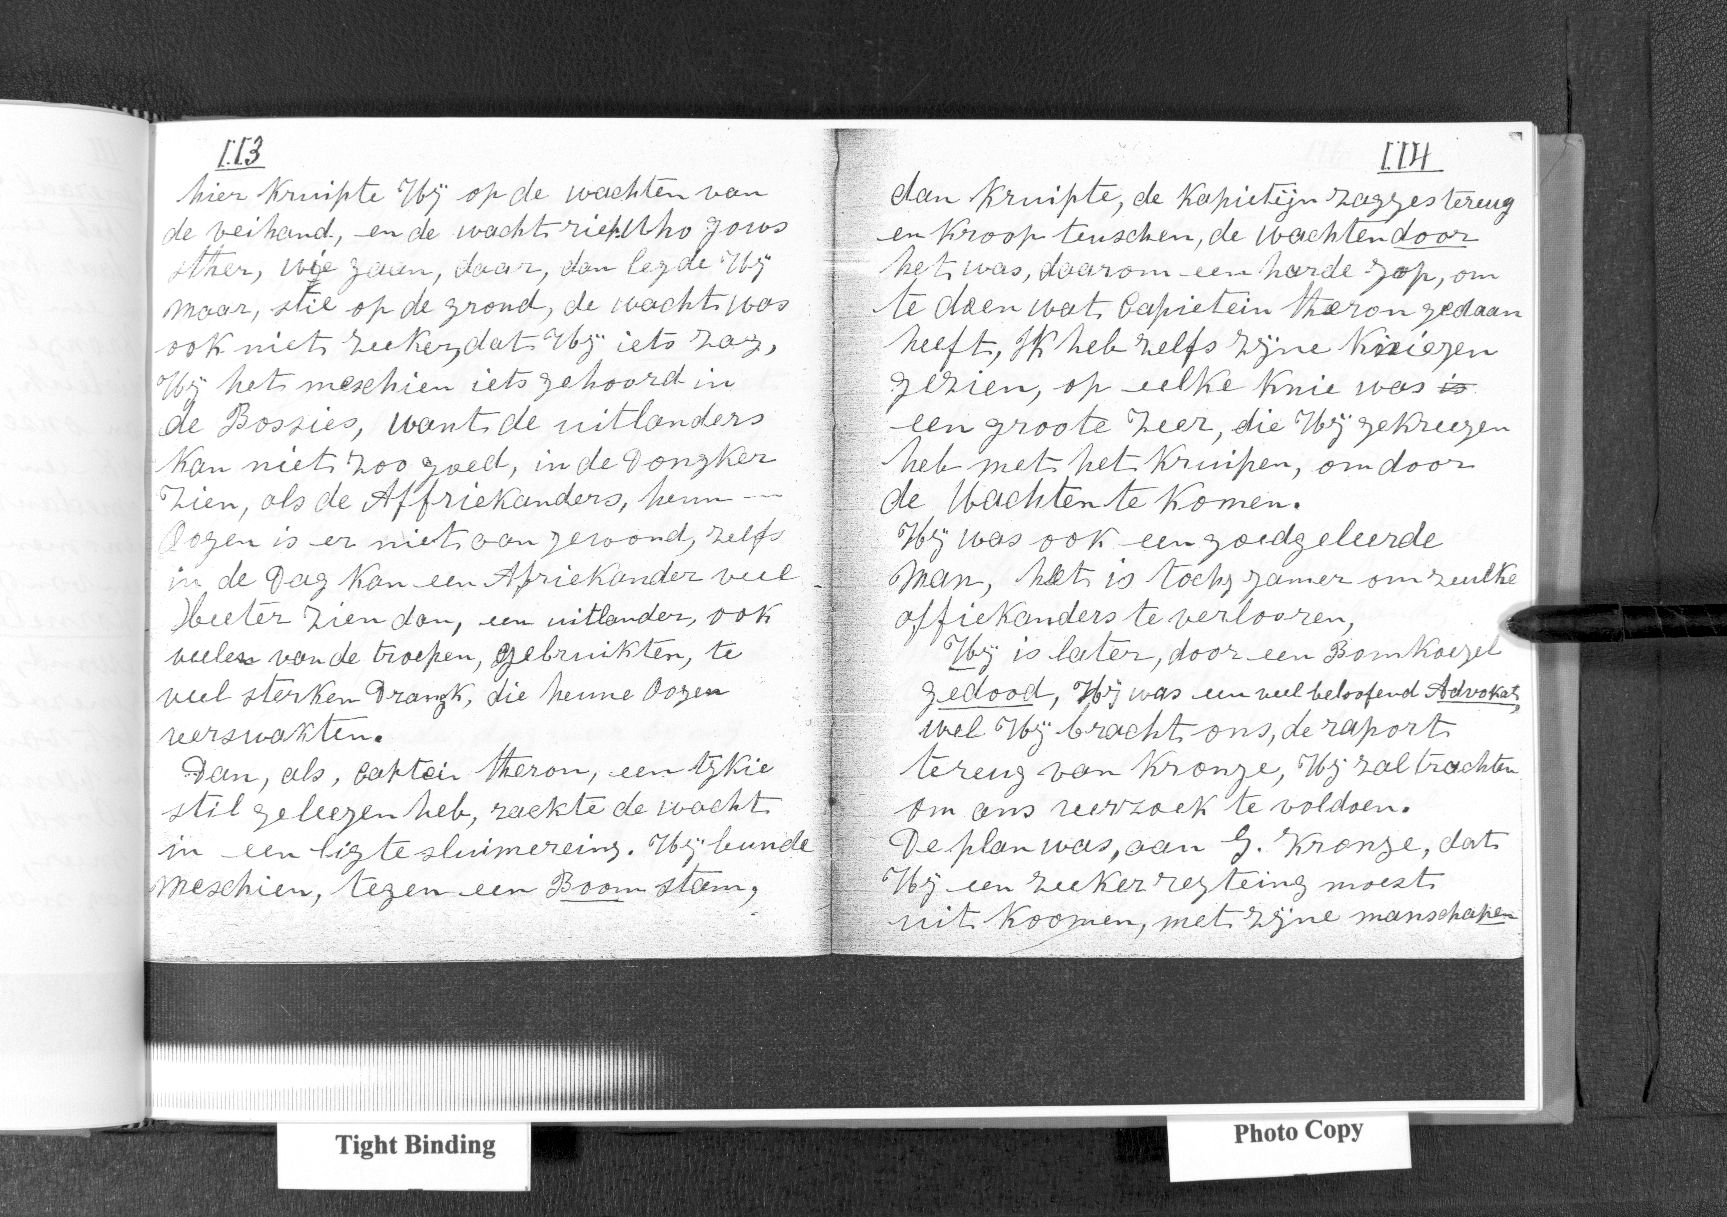 113
hier Kruipte Hÿ op de wachten van
de veihand, en de wacht riep Who gows
ther, wie gaan, daar, dan legde Hÿ
maar, stil op de grond, de wacht was
ook niet zeeker, dat Hÿ iets zag,
Hÿ het meschien iets gehoord in
de Bossies, want de uitlanders
Kan niet zoo goed, in de Dongker
Zien, als de Affriekanders, heun
Oogen is er niet aan gewond, zelfs
in de Dag Kan een Afriekander veel
beeter zien dan, een uitlander, ook
veele van de troepen, gebruikten, te
veel sterken Drangk, die heune Oogen
verswakten.
Dan, als, Captein theron, een tÿkie
stil geleegen heb, raekte de wacht
in een ligte sluimereing. Hÿ leunde
meschien, tegen een Boom stam,
114
dan Kruipte, de Kapietijn zaggies tereug
en Kroop teuschen, de wachten door
het was, daarom een harde zop, om
te doen wat Capietein theron gedaan
heeft, Ik heb zelfs zÿne Knieigen
gezien, op eelke Knie was is
een groote Zeer, die Hÿ gekreegen
heb met het Kruipen, om door
de Wachten te Komen.
Hÿ was ook een goedgeleerde
Man, het is toch zamer om zeulke
affiekanders te verlooren,
Hÿ is later, door een Bomkoegel
gedood, Hÿ was een veel beloofend Advokat,
wel Hÿ bracht ons, de raport
tereug van Kronge, Hÿ zal trachten
om ons verzoek te voldoen.
De plan was, aan G. Kronge, dat
Hÿ een zeeker regteing moest
uit Koomen, met zÿne manschapen
Tight Binding
Photo Copy